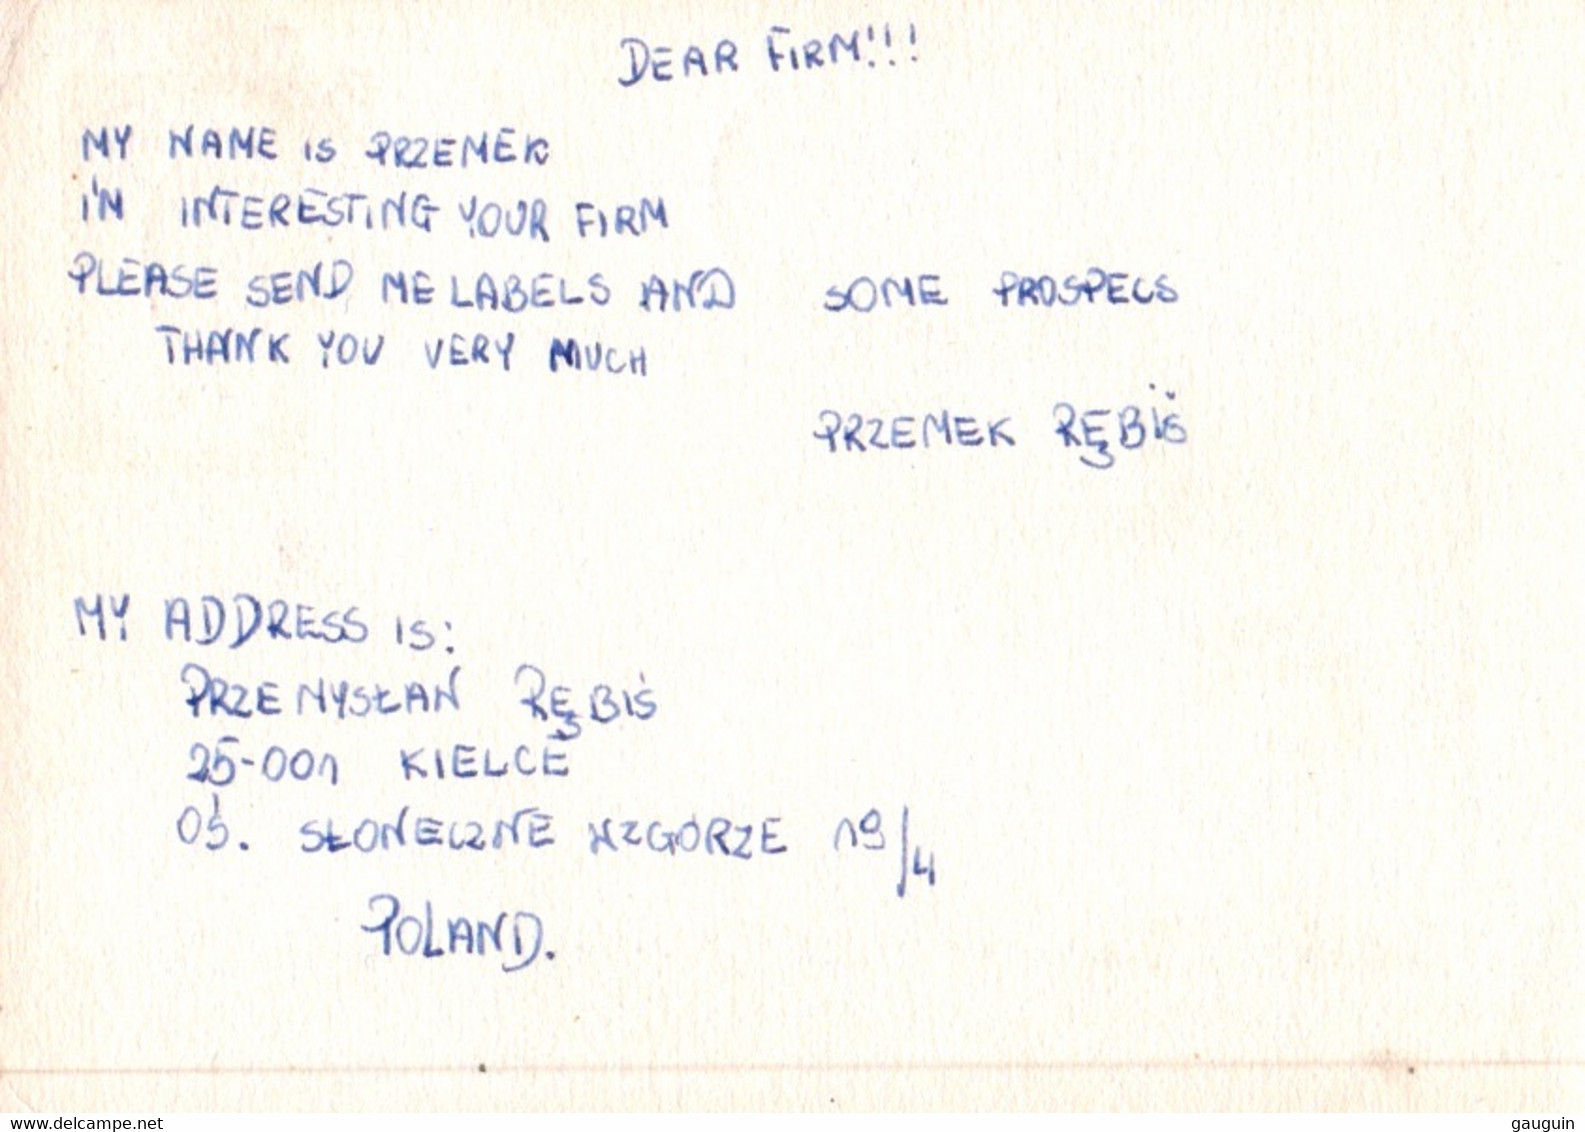 DEAR FIRM!!!
MY NAME is PRZEMEK
I'M INTERESTING YOUR FIRM
PLEASE SEND ME LABELS AND SOME PROSPECS
THANK YOU VERY MUCH
PRZEMEK RĘBIŚ
MY ADDRESS IS:
PRZEMYSŁAW RĘBIŚ
25-001 KIELCE
OŚ. SŁONECZNE WZGÓRZE 19/4
POLAND.
www.delcampe.net
gauguin